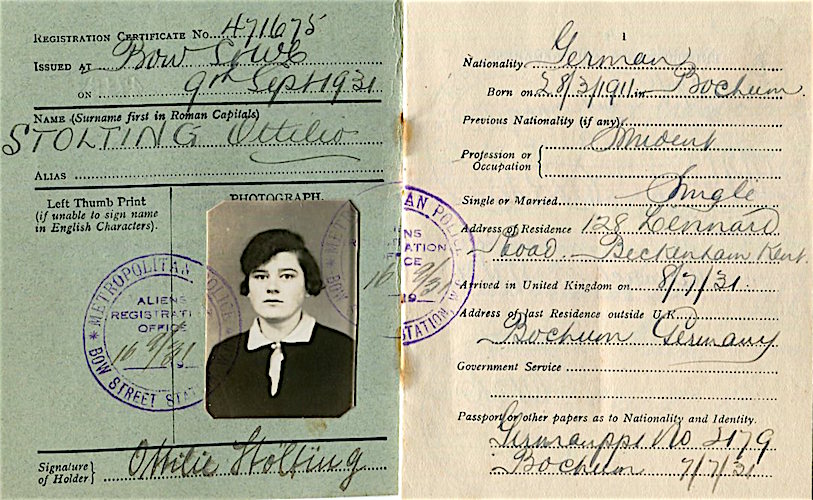 REGISTRATION CERTIFICATE No. 471675
ISSUED AT Bow St WC
ON 9th Sept 1931
NAME (Surname first in Roman Capitals)
STOLTING Ottilie
ALIAS
Left Thumb Print
(if unable to sign name
in English Characters).
PHOTOGRAPH.
METROPOLITAN POLICE
ALIENS
REGISTRATION
OFFICE
16 9/31
BOW STREET STATION
Signature
of Holder
Ottilie Stolting
1
Nationality German
Born on 28/3/1911 in Bochum
Previous Nationality (if any)
Profession or
Occupation
Student
Single or Married Single
Address of Residence 128 Lennard
Road Beckenham Kent
Arrived in United Kingdom on 8/7/31
Address of last Residence outside U.K.
Bochum Germany
Government Service
Passport or other papers as to Nationality and Identity.
German ppt No 2179
Bochum 7/7/31
METROPOLITAN POLICE
ALIENS
REGISTRATION
OFFICE
16 9/31
19
BOW STREET STATION, W.C.